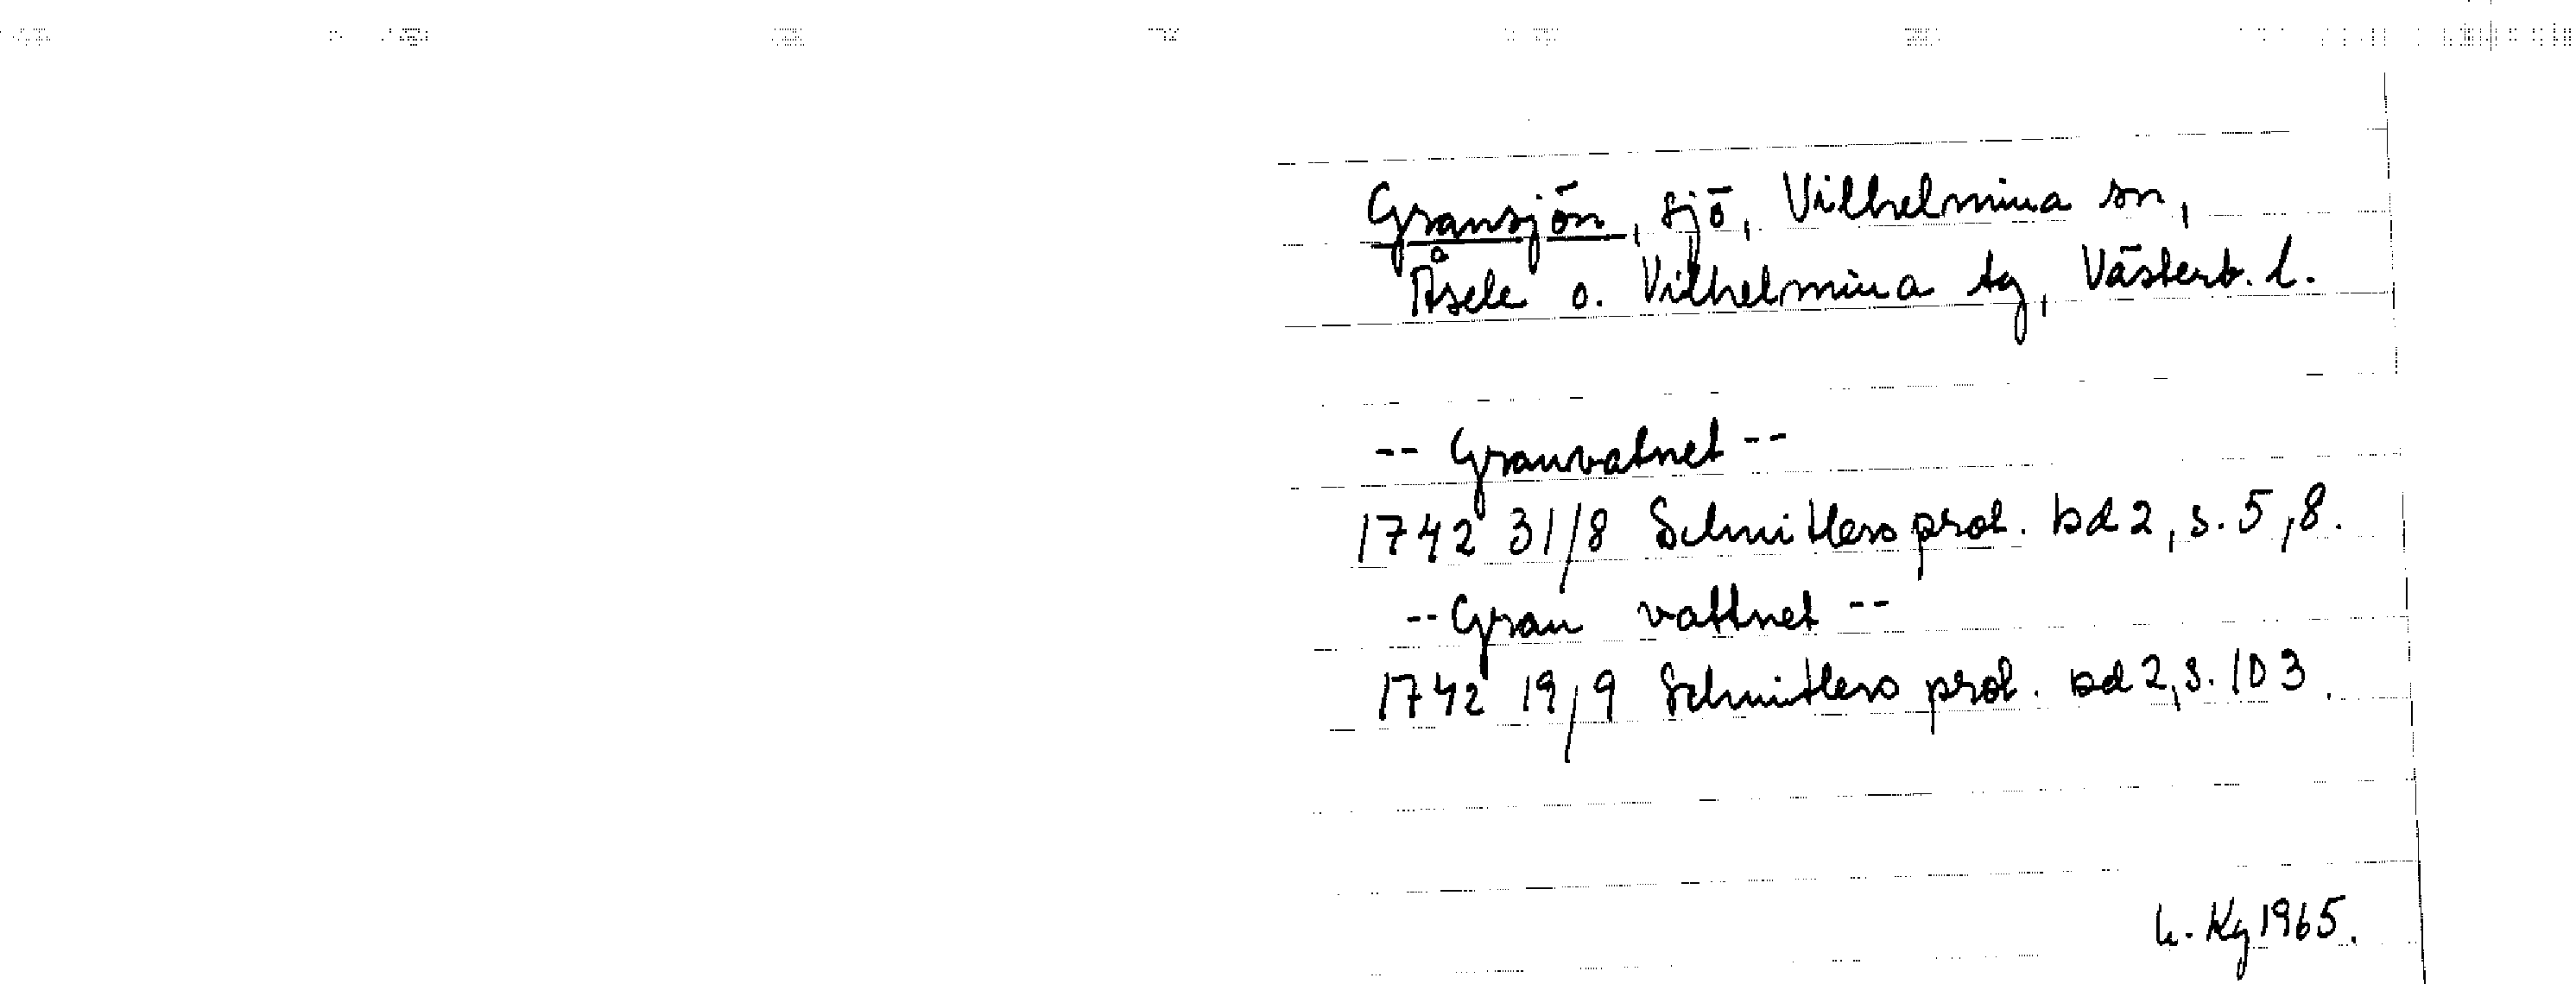 Gransjön, sjö, Vilhelmina sn,
Åsele o. Vilhelmina tg, Västerb. l.
-- Granvatnet --
1742 31/8 Schnitlers prot. bd 2, s. 5, 8.
-- Gran vattnet --
1742 19/9 Schnitlers prot. bd 2, s. 103.
Kg 1965.